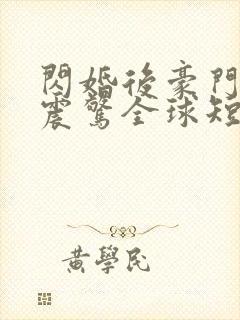 閃婚後豪門
震驚全球短
黃學民